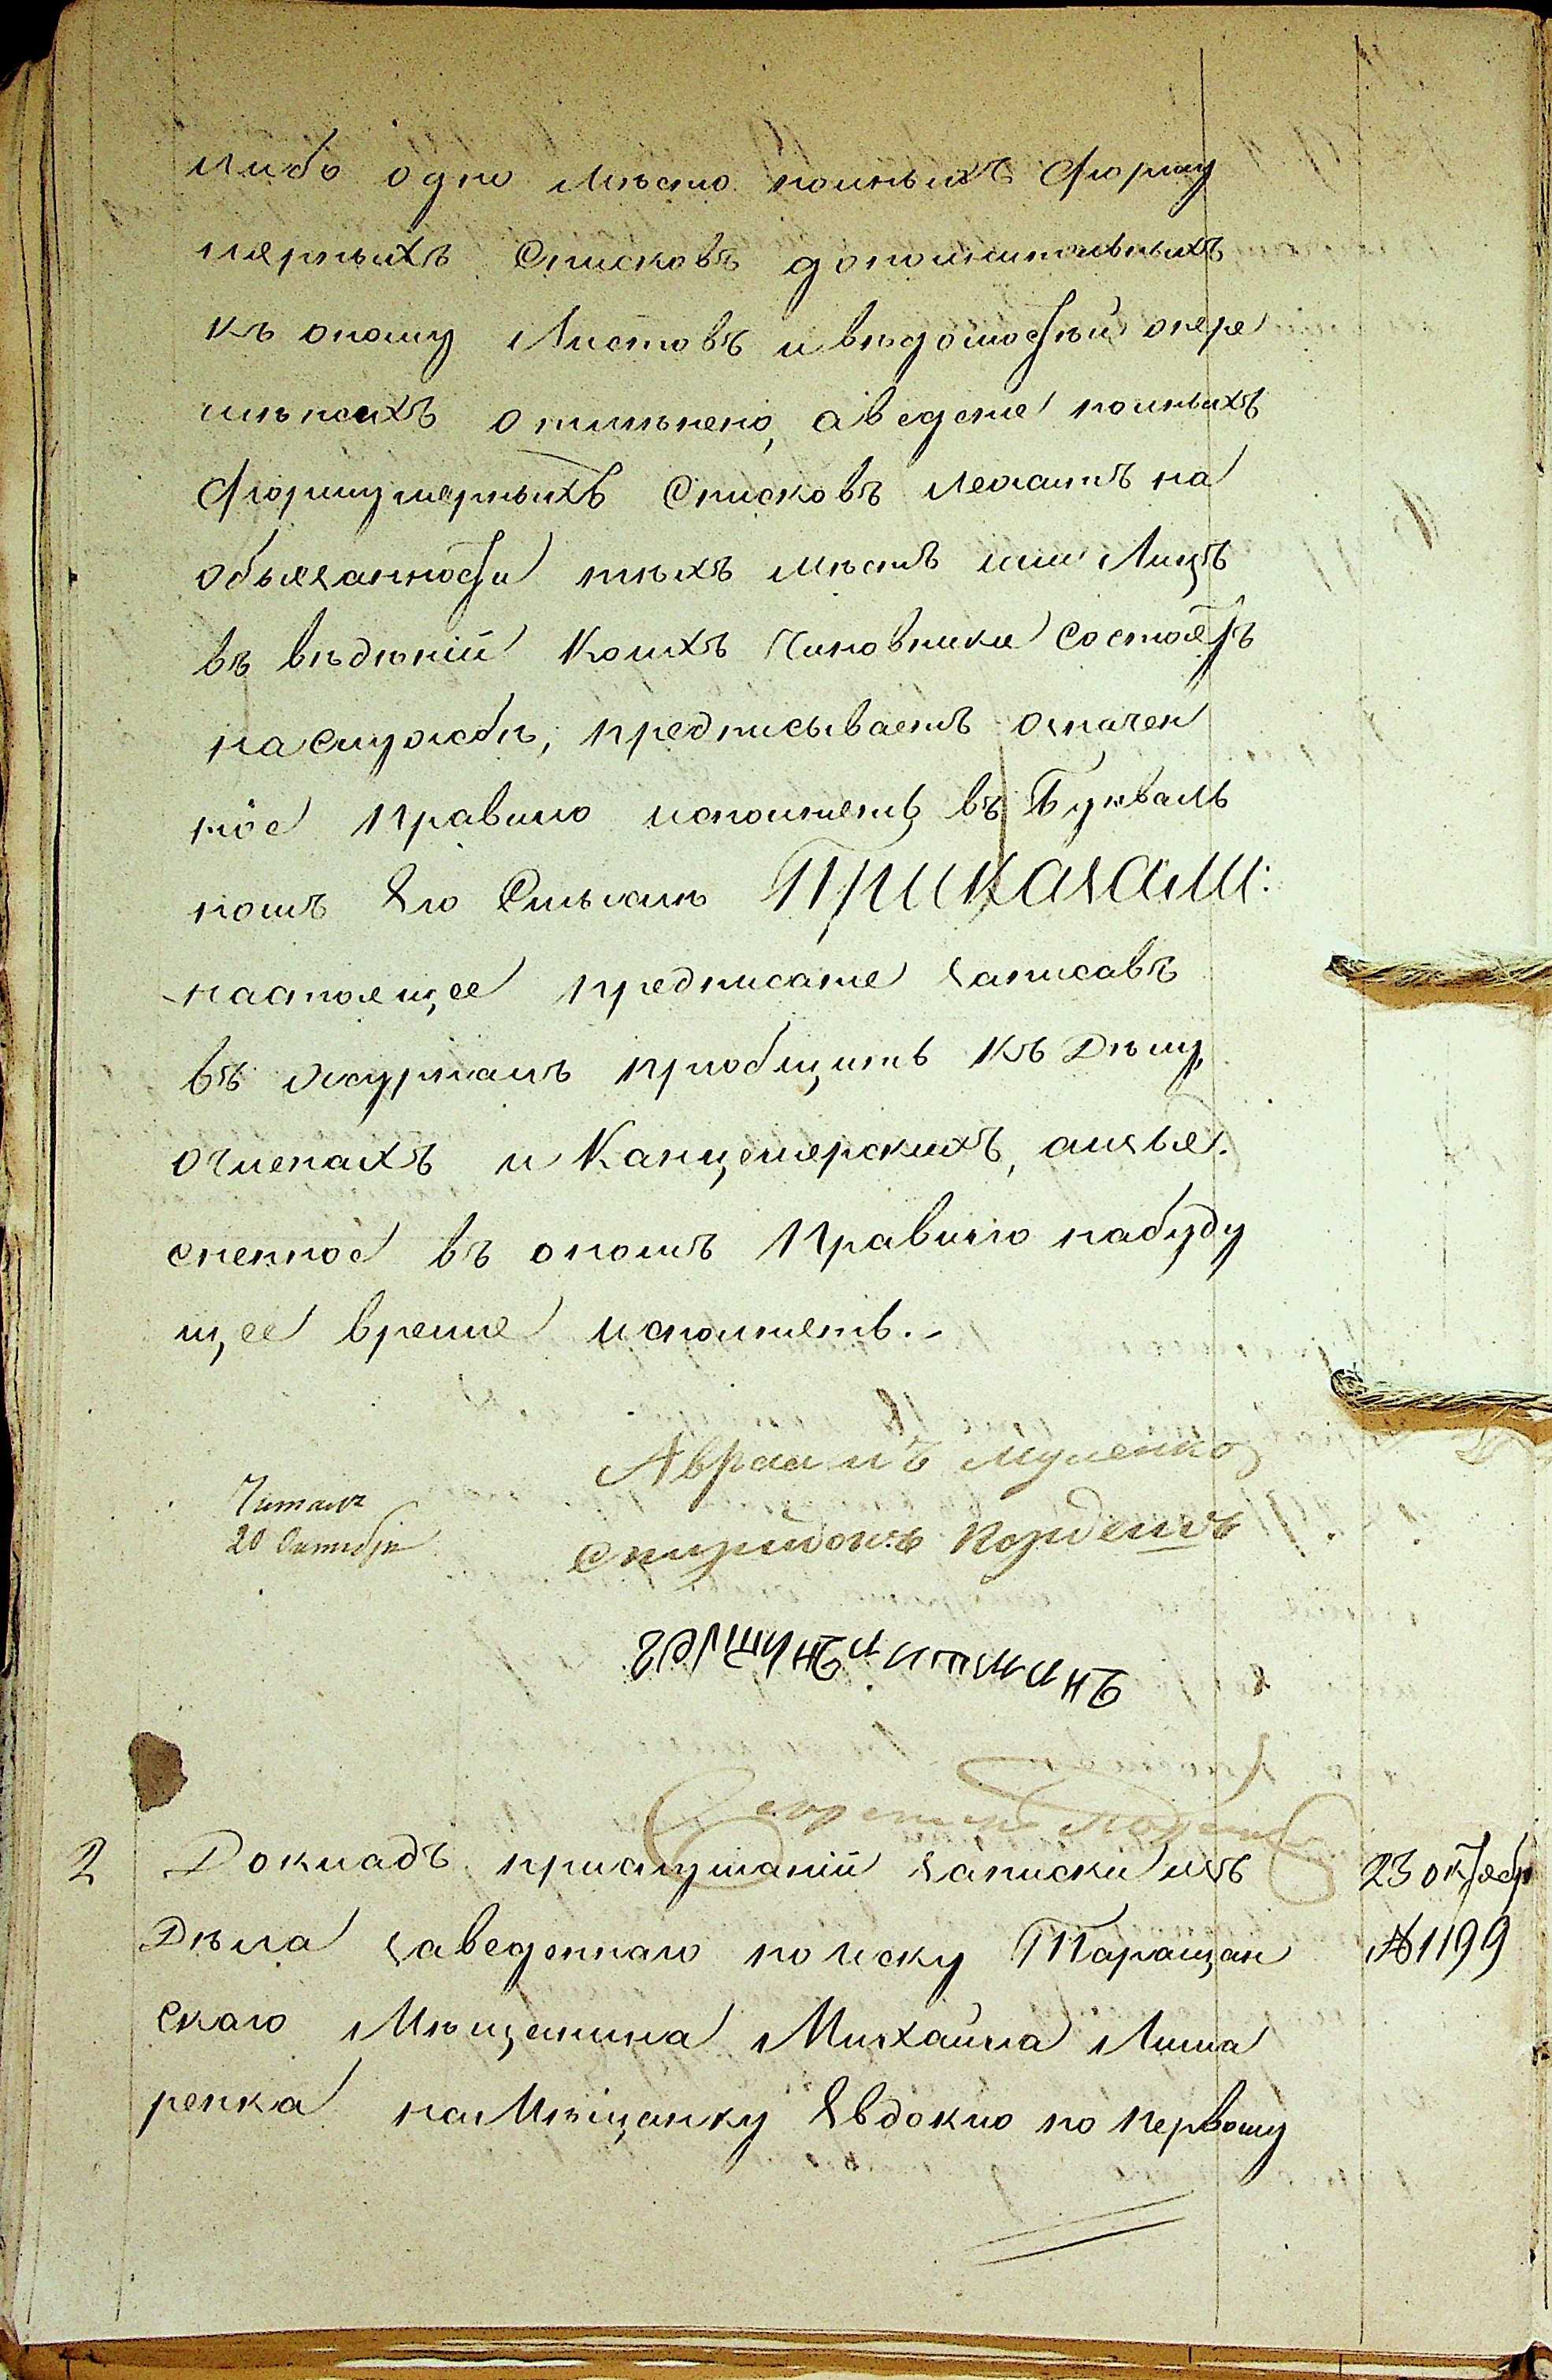 либо одно Мѣсто полныхъ Форму
лярныхъ Списковъ дополнительныхъ
къ оному Листовъ и вѣдомостей опере
мѣнахъ отмѣнено, аведенie полныхъ
Формулярныхъ Списковъ лежатъ на
обязанности тѣхъ мѣстъ или Лицъ
въ вѣдѣніи Коихъ Чиновники Состоятъ
на службѣ, предписываетъ означен
ное Правило исполнять въ Букваль
номъ Его Смыслѣ Приказали:
настоящее предписаніе записавъ
въ журналъ пріобщить къ Дѣлу
очленахъ и Канцелярскихъ, аизъя.
сненное въ ономъ Правило набуду
щее время исполнять.-
Авраамъ Муленко
Читалъ
20 Октября
Спиридонъ Кордешъ
Секретарь
2 Докладъ прислушаніи записки изъ 23 октябр
Дѣла заведеннаго по иску Таращан №1199
скаго Мѣщанина Михайла Лиша
ренка на Мѣщанку Евдокію по первому